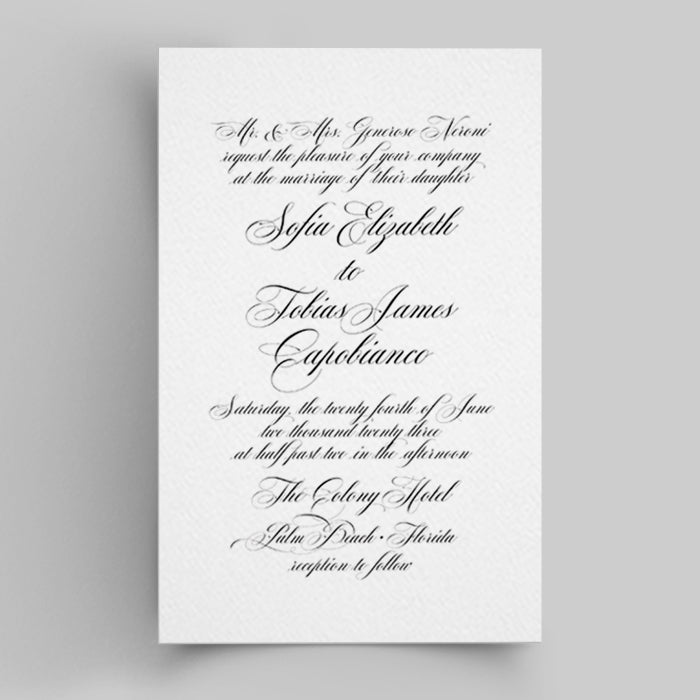 Mr. & Mrs. Generoso Neroni
request the pleasure of your company
at the marriage of their daughter
Sofia Elizabeth
to
Tobias James
Capobianco
Saturday, the twenty fourth of June
two thousand twenty three
at half past two in the afternoon
The Colony Hotel
Palm Beach • Florida
reception to follow